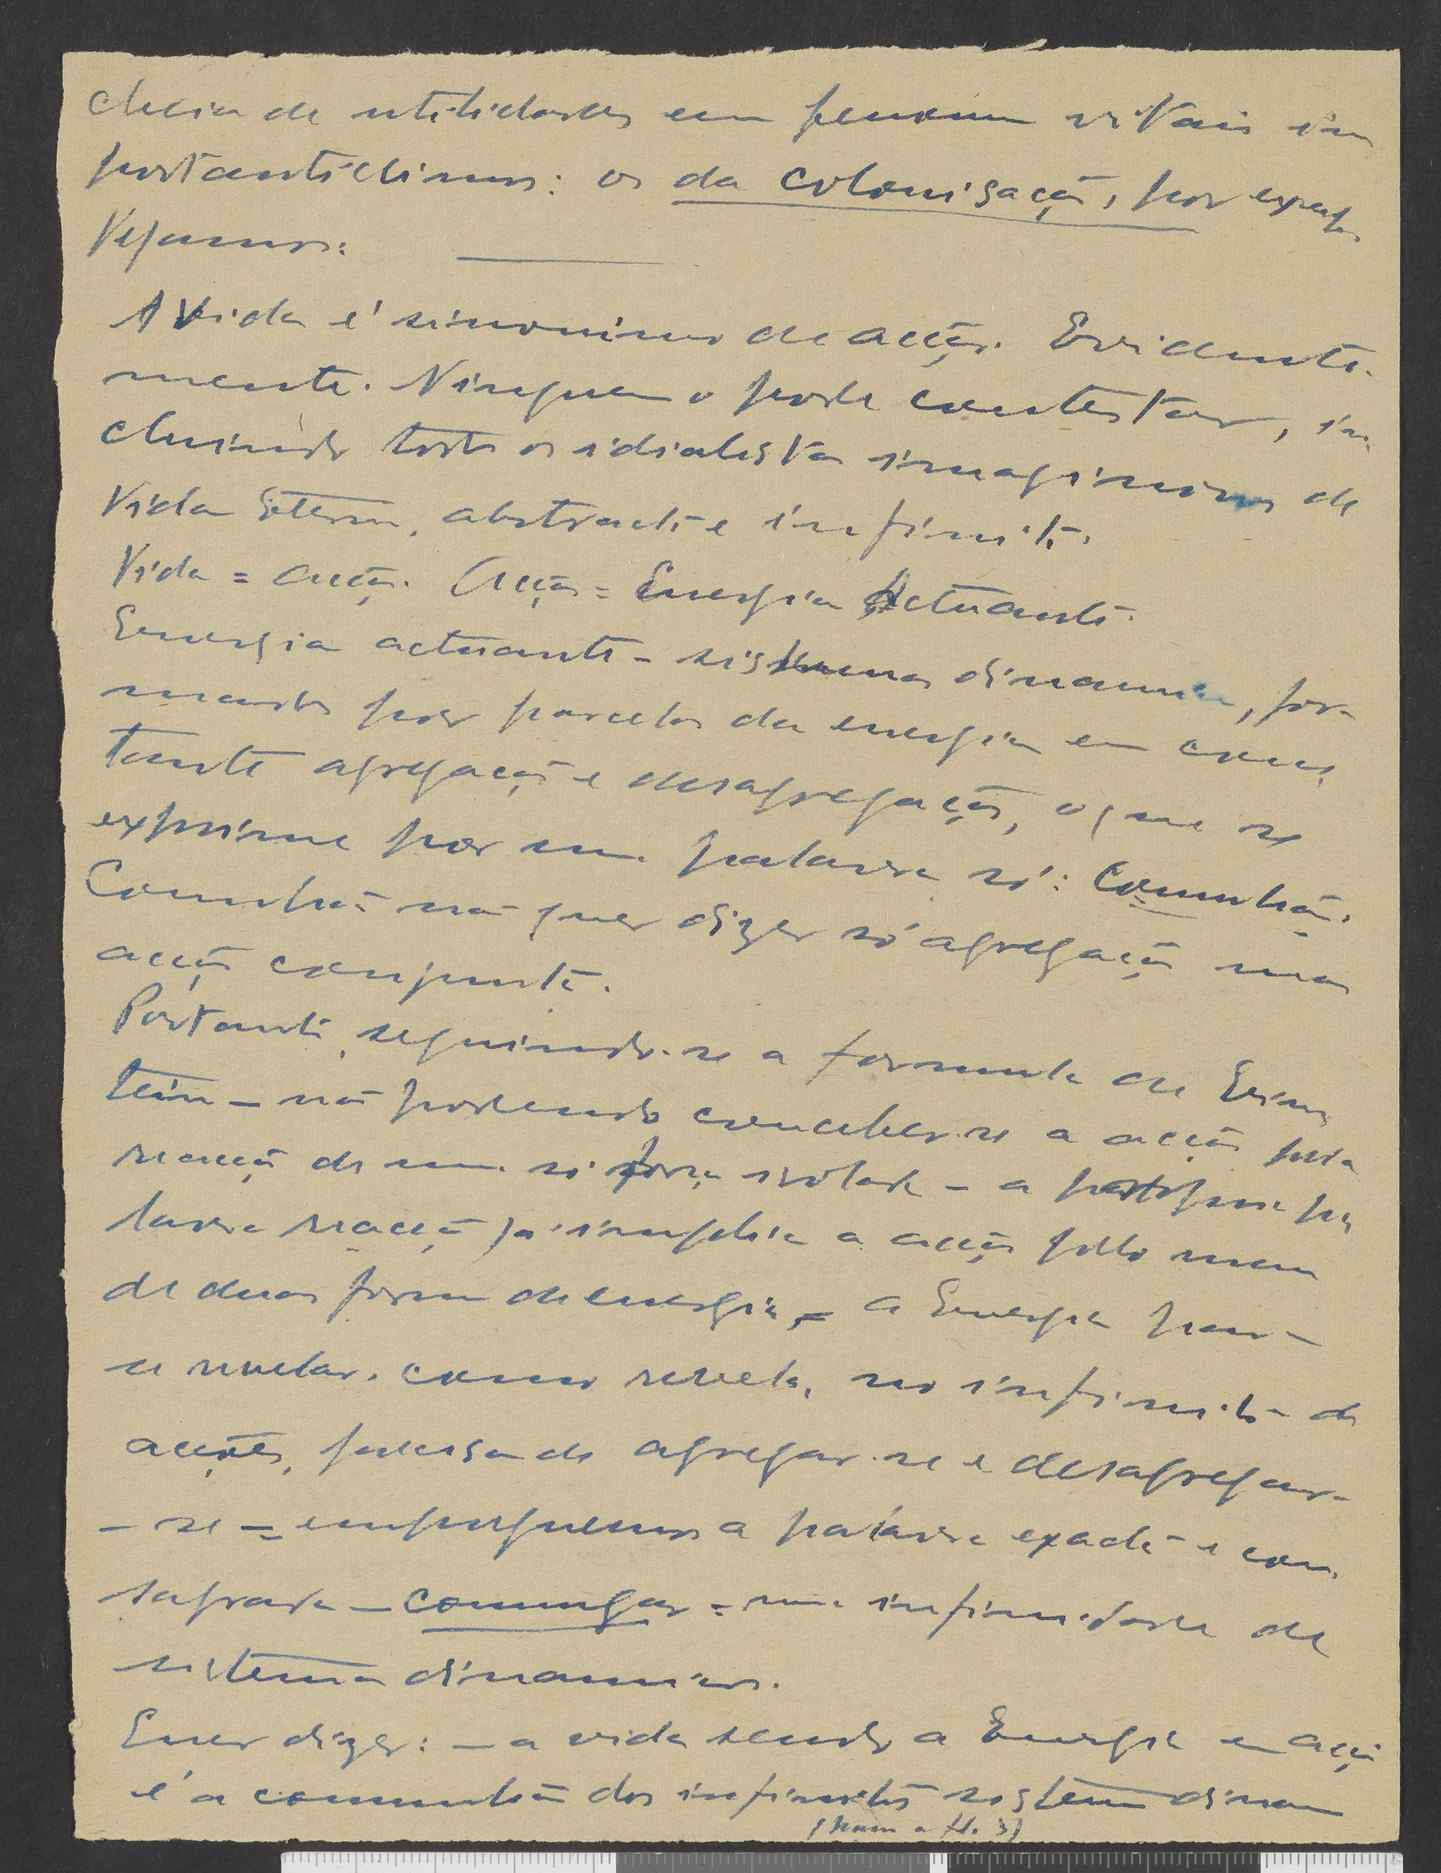 cheia de utilidades em fenomenos vitais im
portantissimos: os da colonisação, por exemplo.
Vejamos:
A vida é sinonimo de acção. Evidente-
mente. Ninguem o pode contestar, in
cluindo todos os idialistas de
Vida Eterna, abstracta e infinita.
Vida = acção. Acção = Energia Actuante.
Energia actuante = sistema dinamico, for-
mado por parcelas da energia em cons
tante agregação e desagregação, o que se
exprime por uma palavra só: comunhão.
Comunhão não quer dizer só agregação mas
acção conjunta.
Portanto, seguindo-se a formula de Eins
tein – não podendo conceber-se a acção pela
reacção de uma só força isolada – a pa
lavra reacção já implica a acção pelo menos
de duas formas de energia, – a Energia para
se revelar, como revela, no infinito de
acções, precisa de agregar-se e desagregar-
- se – empreguemos a palavra exacta e con
sagrada – comungar = uma infinidade de
sistemas dinamicos.
Quer dizer: – a vida sendo a Energia em acção
é a comunhão dos infinitos sistemas dinam